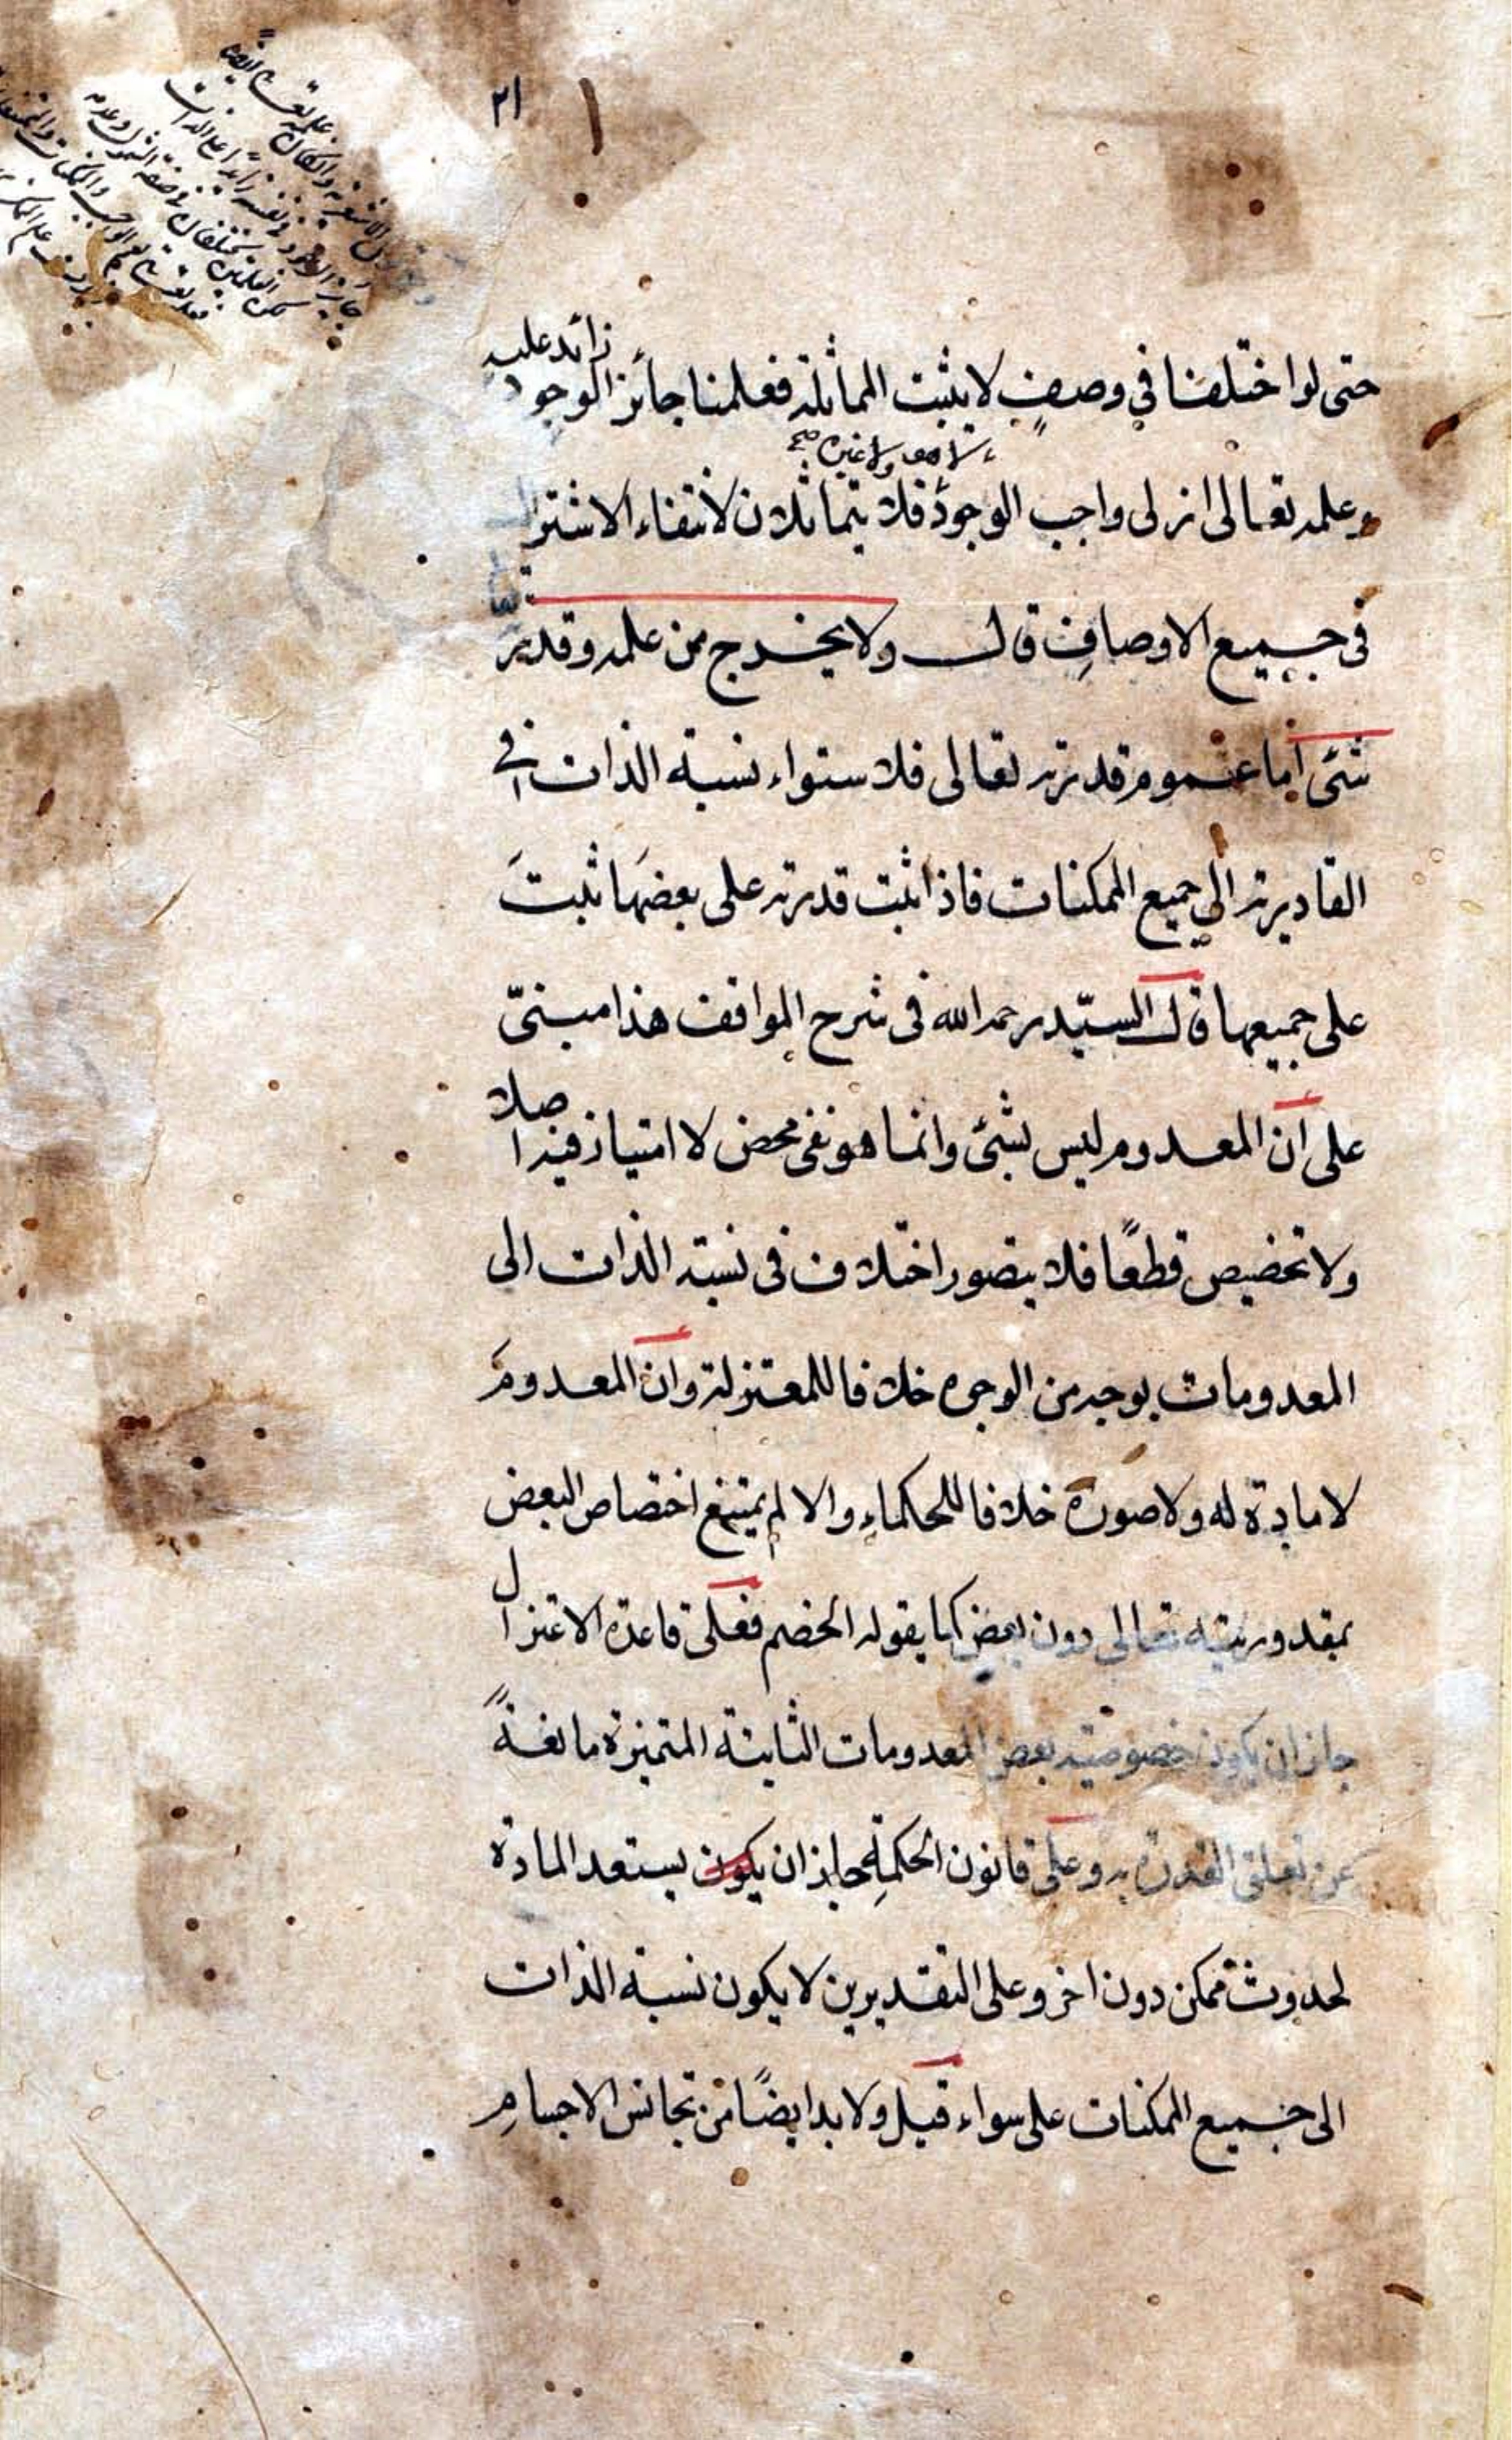 ٢١
حتى لو اختلفا في وصف لا يثبت المماثلة فعلمنا جائز الوجود زائد عليه
لا هو ولا غيره صح
وعلمه تعالى ازلى واجب الوجود فلا يتماثلان لانتفاء الاشتراك
فى جميع الاوصاف قال ولا يخرج من علمه وقدرته تعالى
شئ اما عموم قدرته تعالى فلاستواء نسبة الذات فى
القادرية الى جميع الممكنات فاذا ثبت قدرته على بعضها ثبت
على جميعها قال السيّد رحمه الله فى شرح المواقف هذا مبنىّ
على ان المعدوم ليس بشئ وانما هو نفى محض لا امتياز فيه اصلا
ولا تخصيص قطعًا فلا يتصور اختلاف فى نسبة الذات الى
المعدومات بوجه من الوجوه خلافا للمعتزلة وان المعدوم
لا مادة له ولا صورة خلافا للحكماء والا لم يمتنع اختصاص البعض
بمقدوريته تعالى دون بعض كما يقوله الخصم فعلى قاعدة الاعتزال
جاز ان يكون خصوصية بعض المعدومات الثابتة المتميزة مانعةً
عن تعلق القدرة به وعلى قانون الحكمة جاز ان يكون يستعد المادة
لحدوث ممكن دون اخر وعلى التقديرين لا يكون نسبة الذات
الى جميع الممكنات على سواء قيل ولا بد ايضًا من تجانس الاجسام